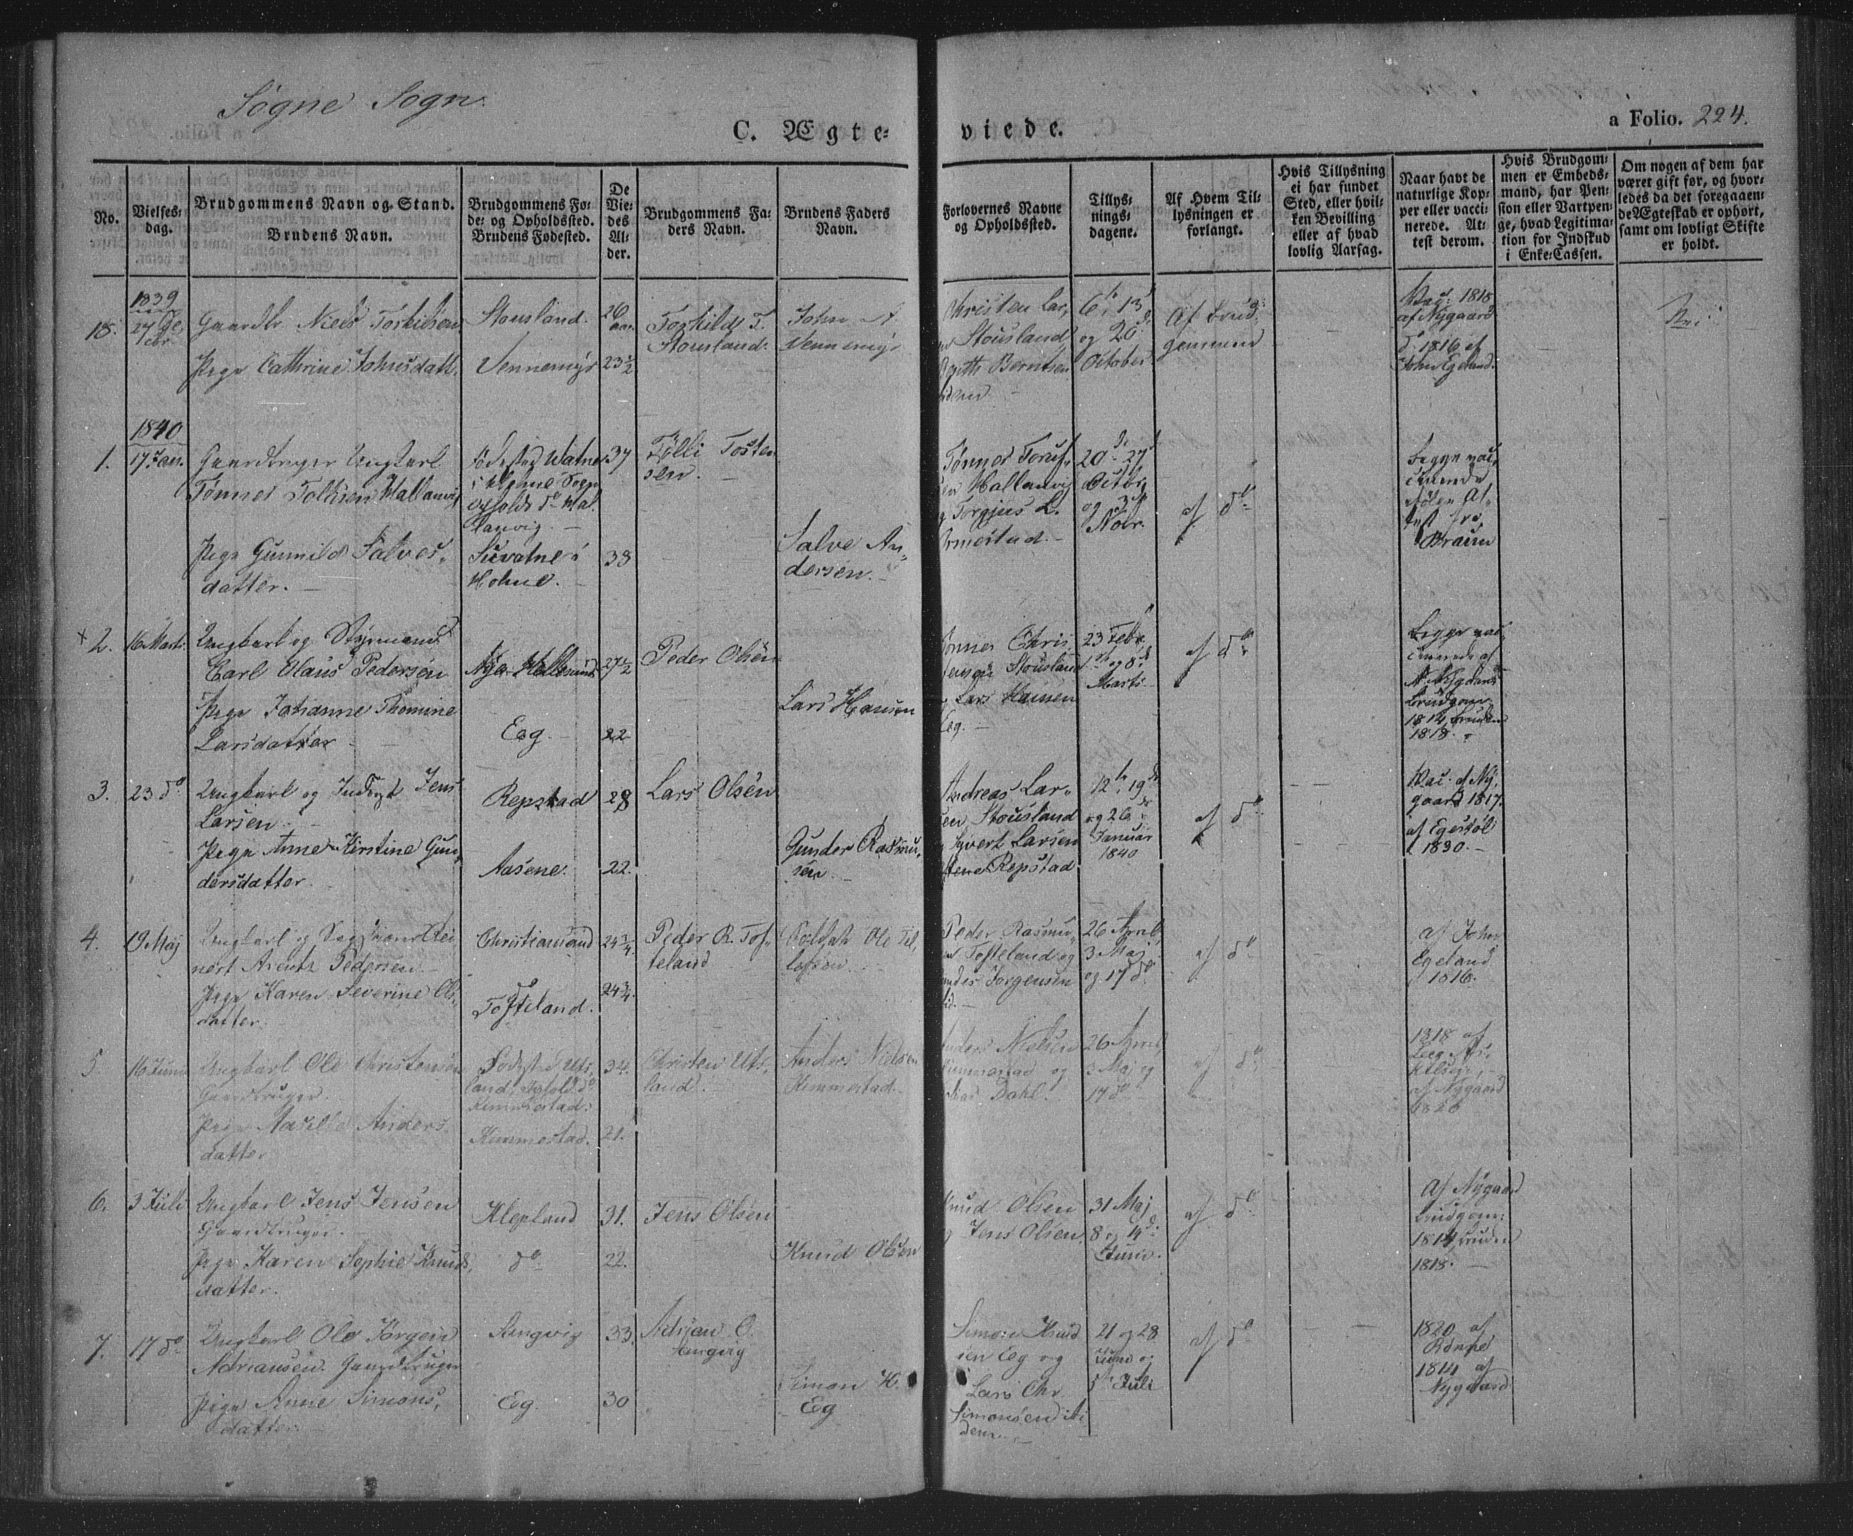 Søgne Sogn.
C. Ægte-
viede.
a Folio. 224.
No.
Vielses-
dag.
Brudgommens Navn og Stand.
Brudens Navn.
Brudgommens Fø-
de- og Opholdssted.
Brudens Fødested.
De
Vie-
des
Al-
der.
Brudgommens Fa-
ders Navn.
Brudens Faders
Navn.
Forlovernes Navne
og Opholdssted.
Tillys-
nings-
dagene.
Af Hvem Til-
lysningen er
forlangt.
Hvis Tillysning
ei har fundet
Sted, eller hvil-
ken Bevilling
eller af hvad
lovlig Aarsag.
Naar havt de
naturlige Kop-
per eller vacci-
nerede. At-
test derom.
Hvis Brudgom-
men er Embeds-
mand, har Pen-
sion eller Vartpen-
ge, hvad Legitima-
tion for Indskud
i Enke-Cassen.
Om nogen af dem har
været gift før, og hvor-
ledes da det foregaaen-
de Ægteskab er ophørt,
samt om lovligt Skifte
er holdt.
1839
18.
27 De
cbr.
Gaardbr. Niels Torkildsen
Pige Cathrine Johnsdatt.
Stousland.
Vennemyr
26
aar
23 1/2
Torkild T.
Stousland.
John A
Vennemyr
Christen Lar,
Stousland
Berntsen
6te 13d
og 20d
October
Af Brud-
gommen
Vac: 1818
af Nygaard
d. 1816 af
John Egeland.
Nei
1840
1.
17 Jan.
Gaardbruger Ungkarl
Tønnes Tollisen Hallanvig
Pige Gunnild Salves-
datter.
Fødested Watne
i Holme Sogn
Opholds do Hal
lanvig.
Sivatne i
Holme.
37
38
Tølli Tosten
sen.
Salve An-
dersen.
Tønnes Toruf-
Hallanvig
Torgjus L.
Ormestad.
20d 27d
Octbr,
og 3die
Novr.
af do
Begge vac,
cinerede
At-
test fra
Braun
2.
16 Marts
Ungkarl og Styrmand
Carl Claus Pedersen
Pige Johanne Thomine
Larsdatter
Nye-Hellesund
Eeg.
27 1/2
22
Peder Olsen
Lars Hansen
Tønnes Chris
tensen Stousland
Lars Hansen
Eeg.
23 Febr,
1ste og 8de
Marts
af do
Begge vac,
cinerede af
N. Nygaard
Brudgom
1814, Bruden
1818.
3.
23 do
Ungkarl og Inderst Jens
Larsen.
Pige Anne Kirstine Gun,
dersdatter.
Repstad
Aasene.
28
22.
Lars Olsen
Gunder Rasmu-
sen
Andreas Lar-
sen Stousland
Syvert Larsen
Repstad
12te 19de
og 26de
Januar
1840
af do
Vac. af Ny,
gaard 1817.
af Egesköl
1830.
4.
19 Maj
Ungkarl og
nert Arentz Pedersen
Pige Karen Severine Ols,
datter.
Christiansand
Tofteland.
24 3/4
24 3/4
Peder R. Tof-
teland
Soldat Ole Til,
lofsen.
Peder Rasmu-
sen Tofteland og
Jørgensen
26 April,
3 Maj
og 17 do
af do
af John
Egeland
1816.
5.
16 Juni
Ungkarl Ole Christensen
Gaardbruger.
Pige Anders
datter
Fødested Uts,
land, Ophold do
Kimmestad.
Kimmestad.
34.
21.
Christen Uts,
land.
Anders Nielsen
Kimmestad.
Anders Nielsen
Kimmestad og
Dahl.
26 April,
3 Maj og
17 do
af do
1818 af
af Nygaard
1820
6.
3 Juli
Ungkarl Jens Jensen
Gaardbruger.
Pige Karen Sophie Knuds,
datter.
Klepland
do
31.
22.
Jens Olsen
Knud Olsen
Knud Olsen
og Jens Olsen
31 Maj
8 og 14d
Junio.
af do
Af Nygaard
Brudgom:
1814 Bruden
1818.
7.
17 do
Ungkarl Ole Jørgen
Adriansen. Gaardbruger
Pige Anne Simons,
datter.
Langvig
Eeg.
33.
30
Adrian O.
Langvig
Simon K.
Eeg
Simon Knud
sen Eeg og
Lars Chr.
Simonsen ibi
dem.
21 og 28
Juni og
5te Juli
af do
1820 af
Rönne
1814 af
Nygaard